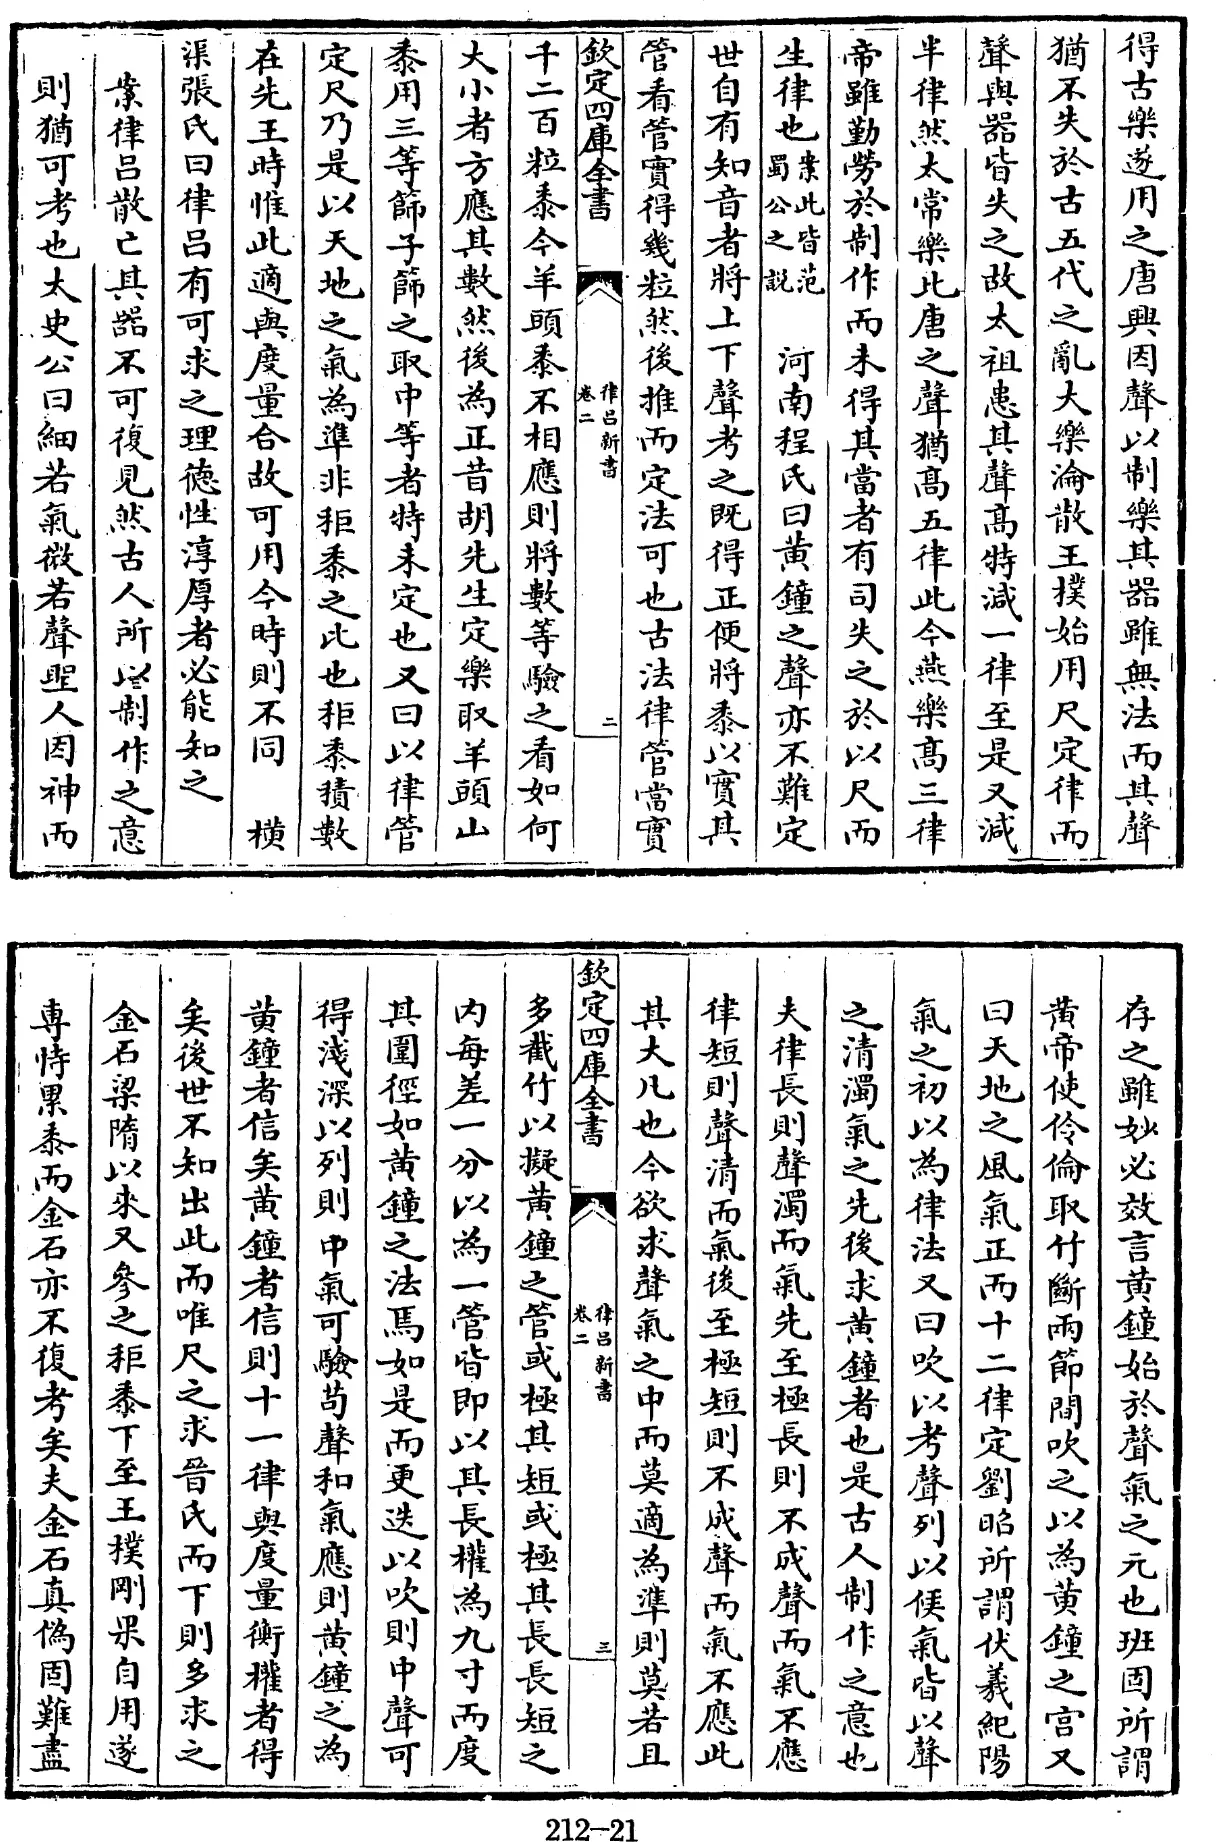 得古樂遂用之唐興因聲以制樂其器雖無法而其聲
猶不失於古五代之亂大樂淪散王撲始用尺定律而
聲與器皆失之故太祖患其聲高特減一律至是又減
半律然太常樂比唐之聲猶高五律此今燕樂高三律
帝雖勤勞於制作而未得其當者有司失之於以尺而
生律也案此皆范蜀公之說 河南程氏曰黄鐘之聲亦不難定
世自有知音者將上下聲考之既得正便將黍以實其
管看管實得幾粒然後推而定法可也古法律管當實
欽定四庫全書 律吕新書 卷二 二
千二百粒黍今羊頭黍不相應則將數等驗之看如何
大小者方應其數然後為正昔胡先生定樂取羊頭山
黍用三等篩子篩之取中等者特未定也又曰以律管
定尺乃是以天地之氣為準非秬黍之比也秬黍積數
在先王時惟此適與度量合故可用今時則不同 横
渠張氏曰律吕有可求之理德性淳厚者必能知之
案律吕散亡其器不可復見然古人所以制作之意
則猶可考也太史公曰細若氣微若聲聖人因神而
存之雖妙必效言黄鐘始於聲氣之元也班固所謂
黄帝使伶倫取竹斷兩節間吹之以為黄鐘之宫又
曰天地之風氣正而十二律定劉昭所謂伏羲紀陽
氣之初以為律法又曰吹以考聲列以候氣皆以聲
之清濁氣之先後求黄鐘者也是古人制作之意也
夫律長則聲濁而氣先至極長則不成聲而氣不應
律短則聲清而氣後至極短則不成聲而氣不應此
其大凡也今欲求聲氣之中而莫適為準則莫若且
欽定四庫全書 律吕新書 卷二 三
多截竹以擬黄鐘之管或極其短或極其長長短之
内每差一分以為一管皆即以其長權為九寸而度
其圍徑如黄鐘之法焉如是而更迭以吹則中聲可
得淺深以列則中氣可驗苟聲和氣應則黄鐘之為
黄鐘者信矣黄鐘者信則十一律與度量衡權者得
矣後世不知出此而唯尺之求晉氏而下則多求之
金石梁隋以來又參之秬黍下至王撲剛果自用遂
專恃累黍而金石亦不復考矣夫金石真偽固難盡
212-21